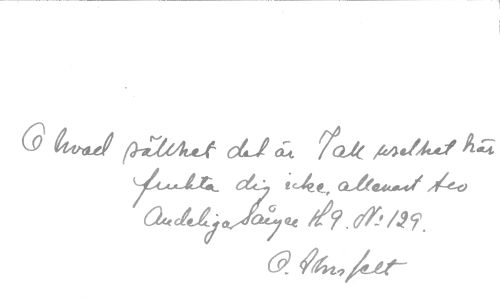 O hvad sällhet det är I all uselhet här
frukta dig icke, allenast tro
Andeliga Sånger H 9. No 129.
O. Ahnfelt